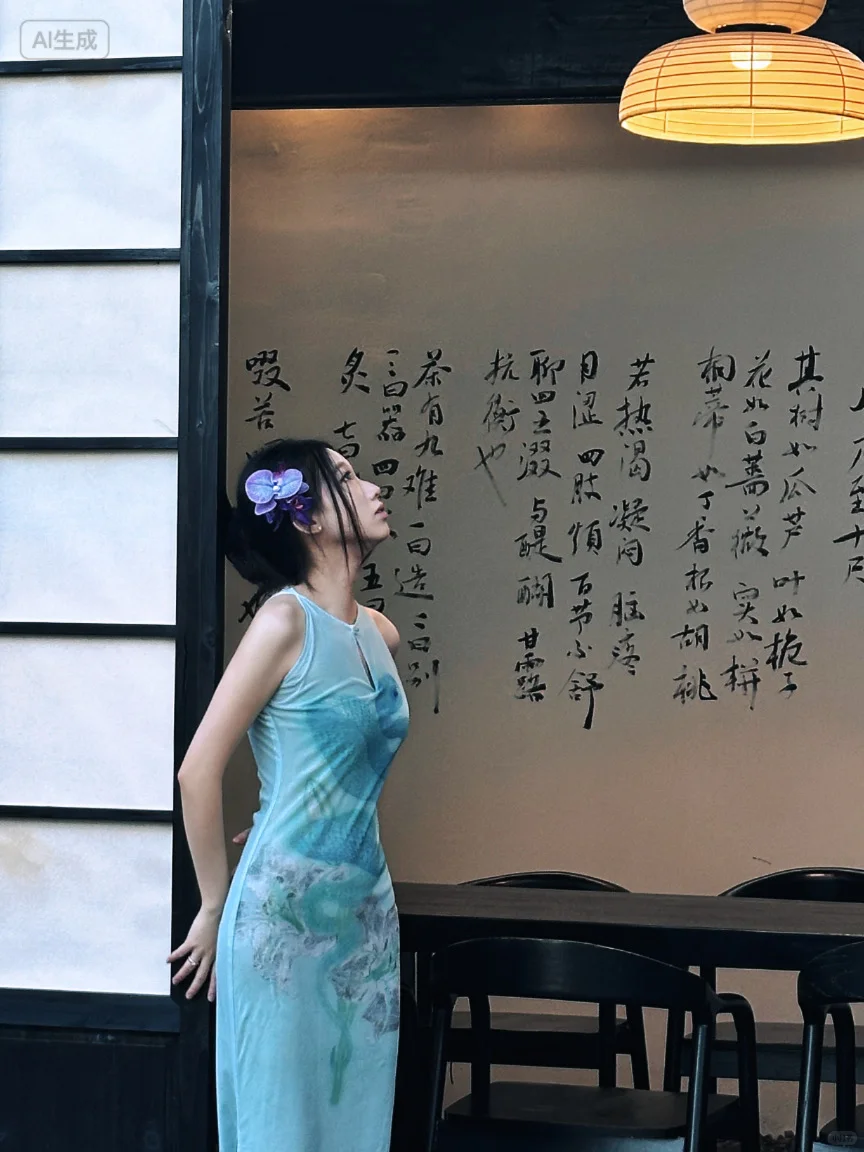 AI生成
至十尺
其树如瓜芦 叶如栀子
花如白蔷薇 实如栟
桐蒂如丁香 根如胡桃
若热渴 凝闷 脑疼
目涩 四肢烦 百节不舒
聊四五啜 与醍醐 甘露
抗衡也
茶有九难 一曰造 二曰别
三曰器 四曰
炙 七曰
啜苦